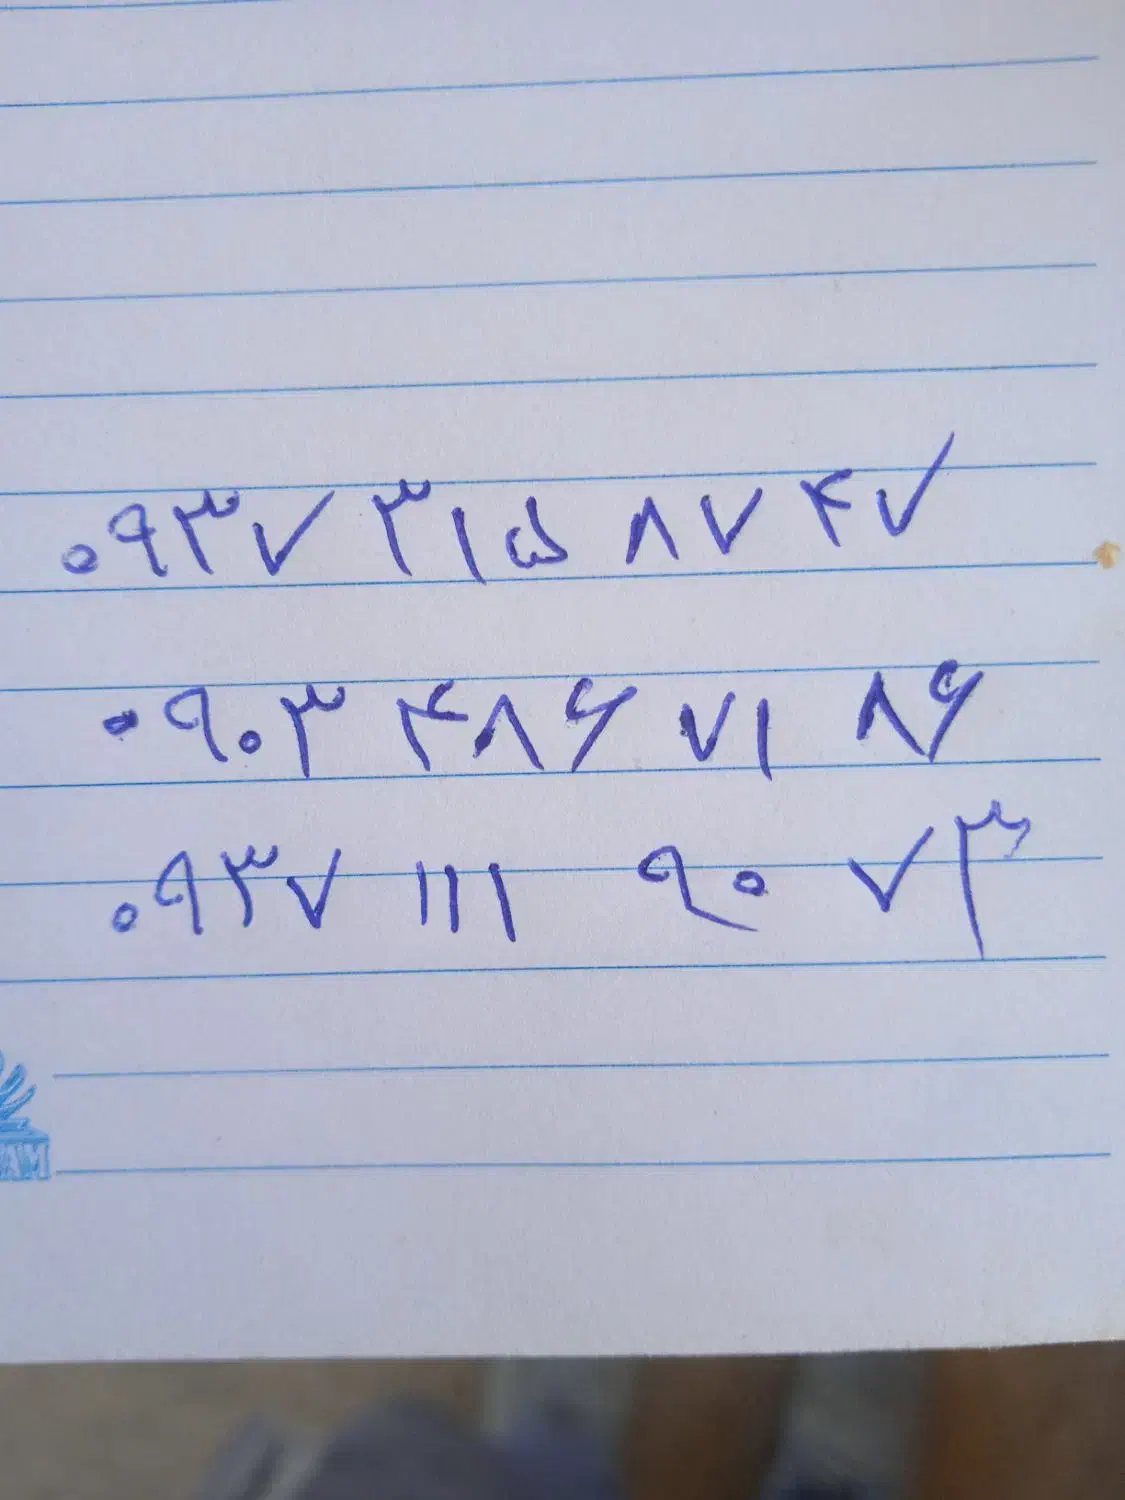 ۰۹۳۷ ۳۱۵ ۸۷ ۴۷
۰۹۰۳ ۴۸۶ ۷۱ ۸۶
۰۹۳۷ ۱۱۱ ۹۰ ۷۳
AM